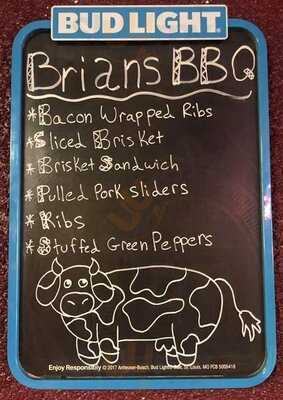 BUD LIGHT.
Brians BBQ
*Bacon Wrapped Ribs
*Sliced Brisket
*Brisket Sandwich
*Pulled Pork Sliders
*Ribs
*Stuffed Green Peppers
Enjoy Responsibly © 2017 Anheuser-Busch, Bud Light® Beer, St. Louis, MO